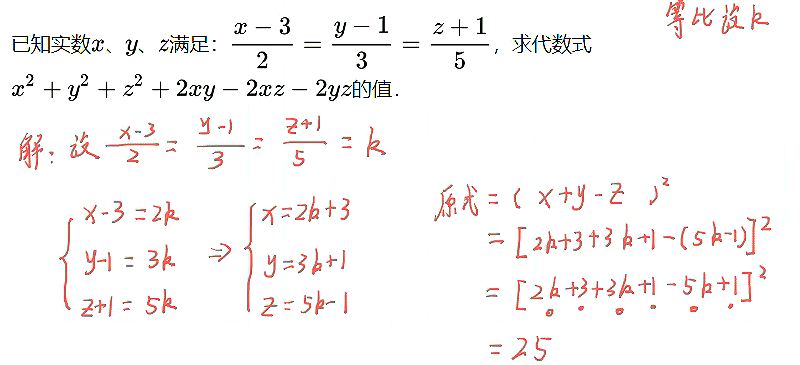 等比设k
已知实数x、y、z满足：(x-3)/2=(y-1)/3=(z+1)/5，求代数式
x²+y²+z²+2xy-2xz-2yz的值.
解：设 (x-3)/2=(y-1)/3=(z+1)/5=k
{x-3=2k
y-1=3k
z+1=5k
⇒
{x=2k+3
y=3k+1
z=5k-1
原式=(x+y-z)²
=[2k+3+3k+1-(5k-1)]²
=[2k+3+3k+1-5k+1]²
=25